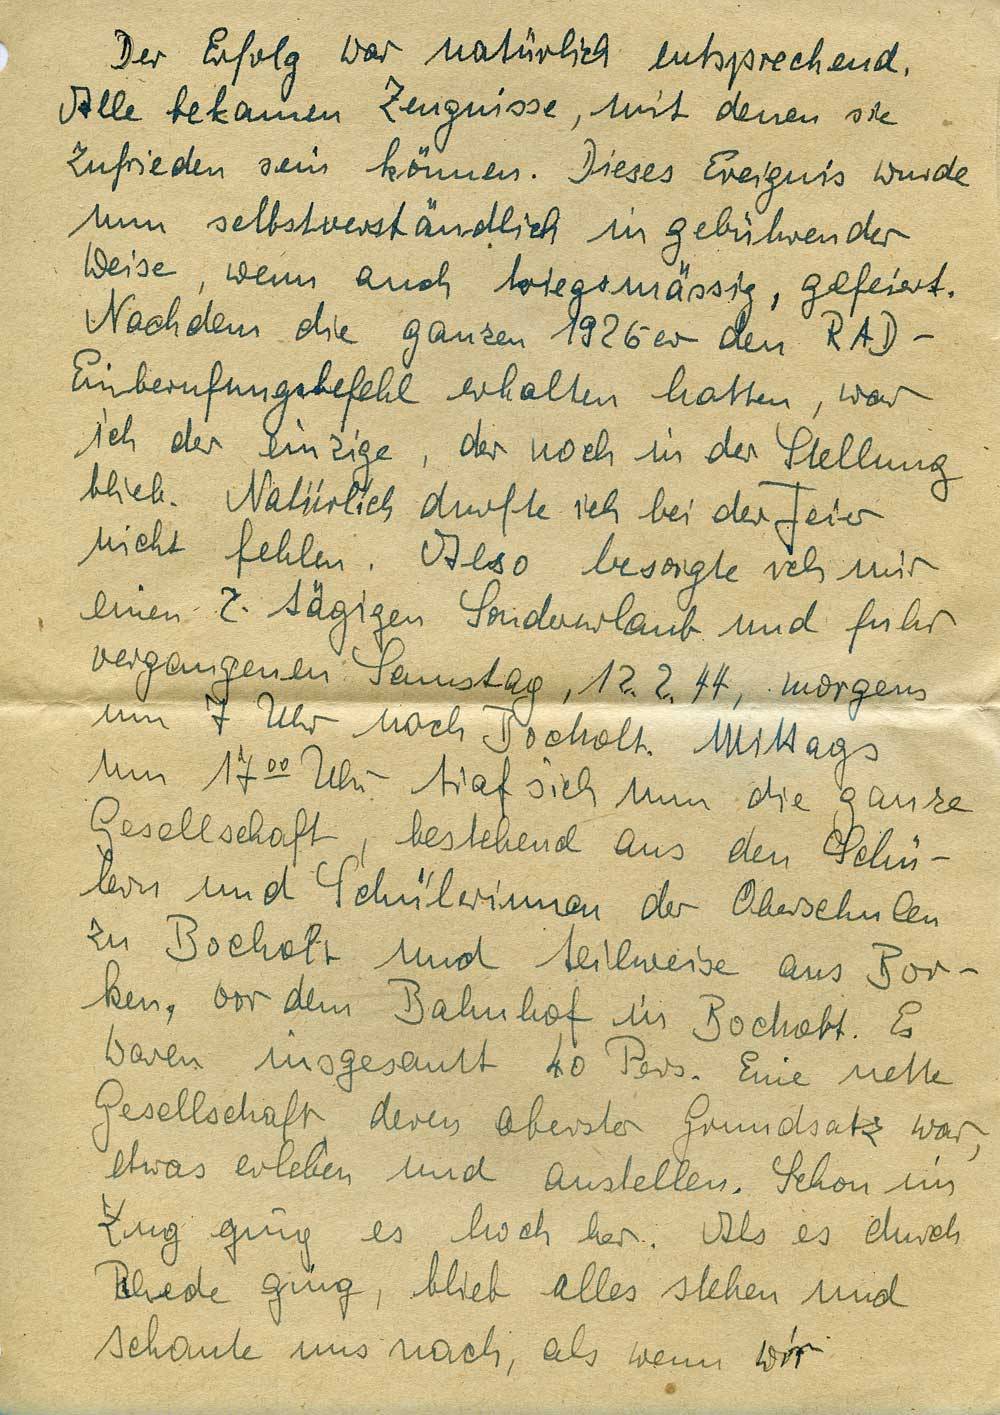 Der Erfolg war natürlich entsprechend.
Alle bekamen Zeugnisse, mit denen sie
zufrieden sein können. Dieses Ereignis wurde
nun selbstverständlich in gebührender
Weise, wenn auch kriegsmässig, gefeiert.
Nachdem die ganzen 1926er den RAD-
Einberufungsbefehl erhalten hatten, war
ich der einzige, der noch in der Stellung
blieb. Natürlich durfte ich bei der Feier
nicht fehlen. Also besorgte ich mir
einen 2. tägigen Sonderurlaub und fuhr
vergangenen Samstag, 12.2.44, morgens
um 7 Uhr nach Bocholt. Mittags
um 17⁰⁰ Uhr traf sich nun die ganze
Gesellschaft, bestehend aus den Schü-
lern und Schülerinnen der Oberschulen
zu Bocholt und teilweise aus Bor-
ken, vor dem Bahnhof in Bocholt. Es
waren insgesamt 40 Pers. Eine nette
Gesellschaft, deren oberster Grundsatz war,
etwas erleben und anstellen. Schon im
Zug ging es hoch her. Als es durch
Rhede ging, blieb alles stehen und
schaute uns nach, als wenn wir